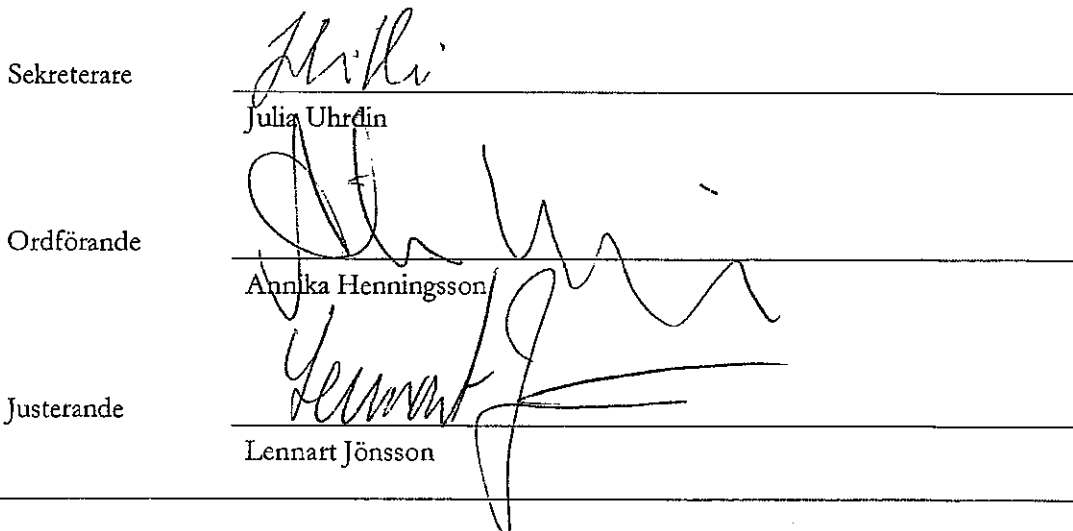 Sekreterare
Julia Uhrdin
Ordförande
Annika Henningsson
Justerande
Lennart Jönsson